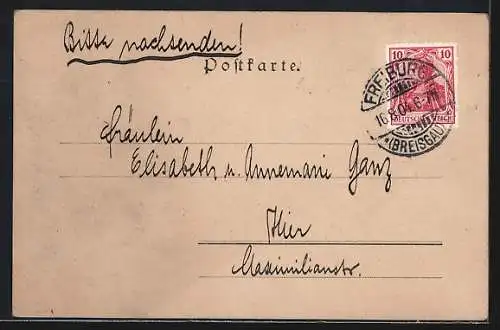 Bitte nachsenden!
Postkarte.
10 10
DEUTSCHES REICH
FREIBURG
(BREISGAU)
Fräulein
Elisabeth u. Annemarie Ganz
Hier
Maximilianstr.